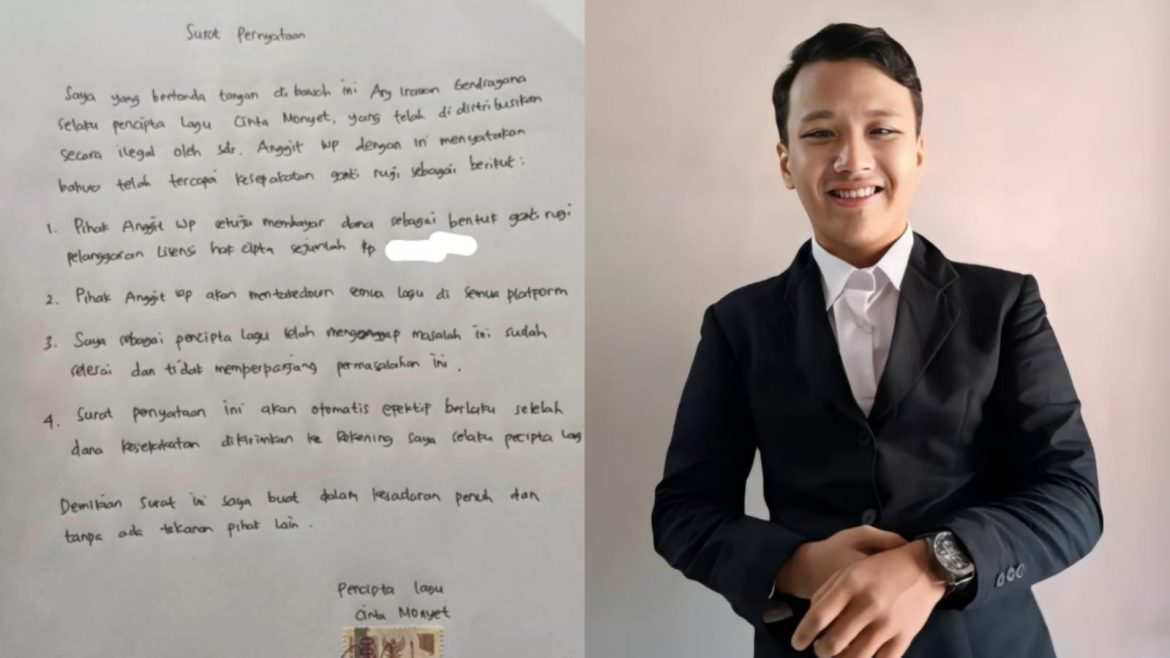 Surat Pernyataan
Saya yang bertanda tangan di bawah ini Ary Irawan Gendragana
selaku pencipta Lagu Cinta Monyet, yang telah di distribusikan
secara ilegal oleh sdr. Anggit WP dengan ini menyatakan
bahwa telah tercapai kesepakatan ganti rugi sebagai berikut:
1. Pihak Anggit WP setuju membayar dana sebagai bentuk ganti rugi
pelanggaran Lisensi hak cipta sejumlah Rp
2. Pihak Anggit WP akan mentakedown semua lagu di semua platform
3. Saya sebagai pencipta lagu telah menganggap masalah ini sudah
selesai dan tidak memperpanjang permasalahan ini.
4. Surat penyataan ini akan otomatis efektip berlaku setelah
dana kesepakatan dikirimkan ke Rekening saya selaku pecipta lag
Demikian Surat ini saya buat dalam kesadaran penuh dan
tanpa ada tekanan pihak lain.
Pencipta lagu
Cinta Monyet